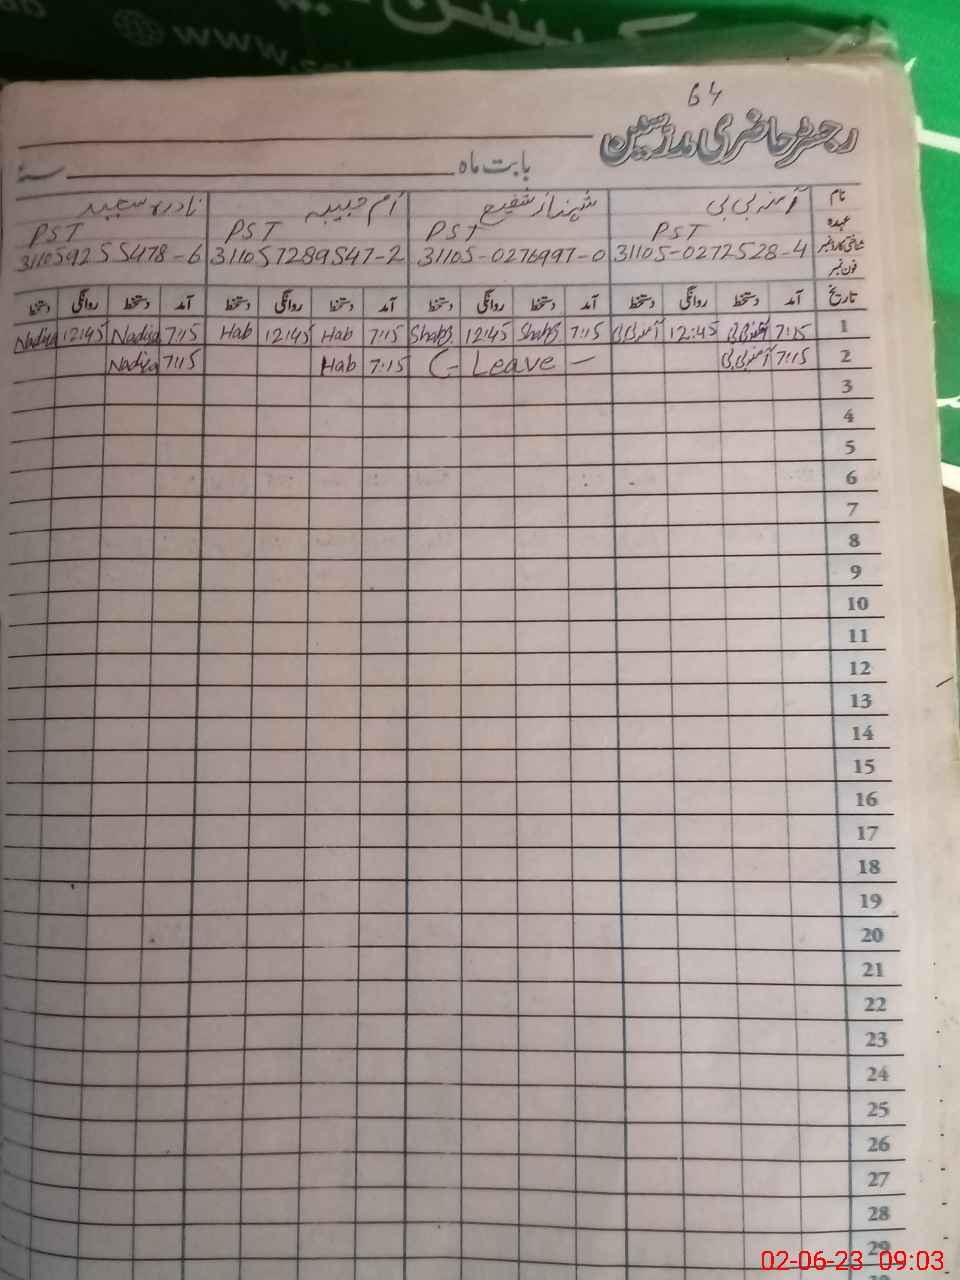 www.
64
رجسٹر حاضری مدرسین
بابت ماہ سنہ
نام آمنہ بی بی شہناز شفیع ام حبیبہ
عہدہ PST PST PST PST
شناختی کارڈ نمبر 31105-0272528-4 31105-0276997-0 311057289547-2 311059255478-6
فون نمبر
تاریخ آمد دستخط روانگی دستخط آمد دستخط روانگی دستخط آمد دستخط روانگی دستخط آمد دستخط روانگی دستخط
1 7:15 آمنہ بی بی 12:45 آمنہ بی بی 7:15 12:45 7:15 Hab 12:45 Hab 7:15 Nadiya 12:45 Nadiya
2 7:15 آمنہ بی بی C- Leave - 7:15 Hab 7:15 Nadiya
3
4
5
6
7
8
9
10
11
12
13
14
15
16
17
18
19
20
21
22
23
24
25
26
27
28
29
02-06-23 09:03